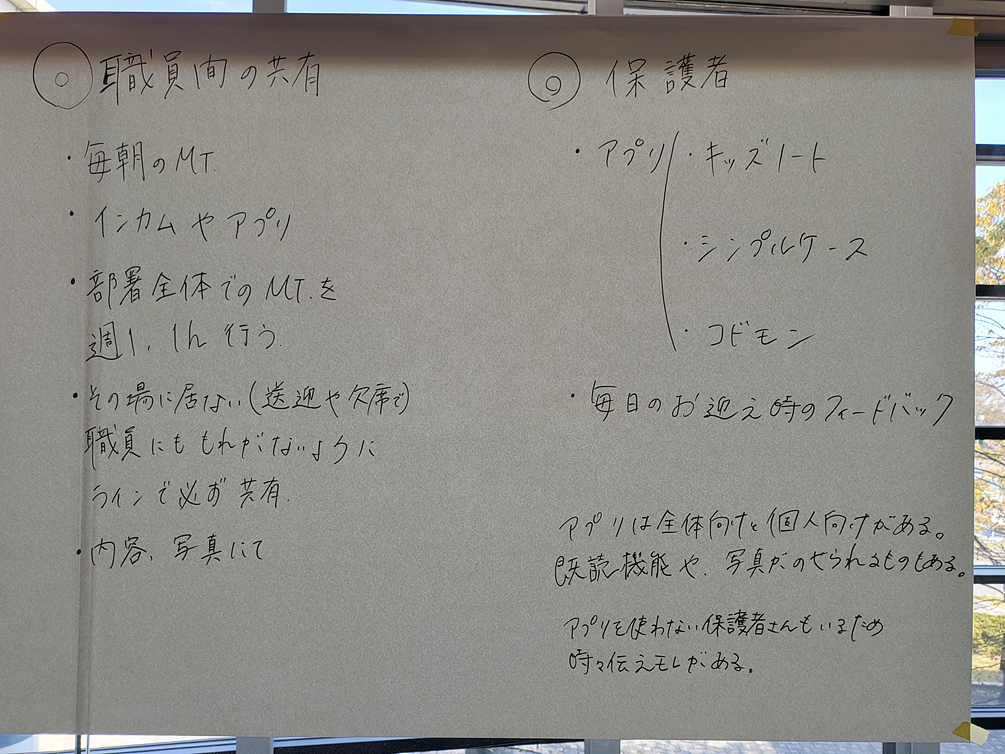 ◎ 職員間の共有
・毎朝のMT.
・インカムやアプリ
・部署全体でのMT.を
週1、1h 行う。
・その場に居ない(送迎や欠席で)
職員にももれがないように
ラインで必ず共有.
・内容、写真にて
◎ 保護者
・アプリ ・キッズノート
・シンプルケース
・コドモン
・毎日のお迎え時のフィードバック
アプリは全体向けと個人向けがある。
既読機能や、写真がのせられるものもある。
アプリを使わない保護者さんもいるため
時々伝えモレがある。